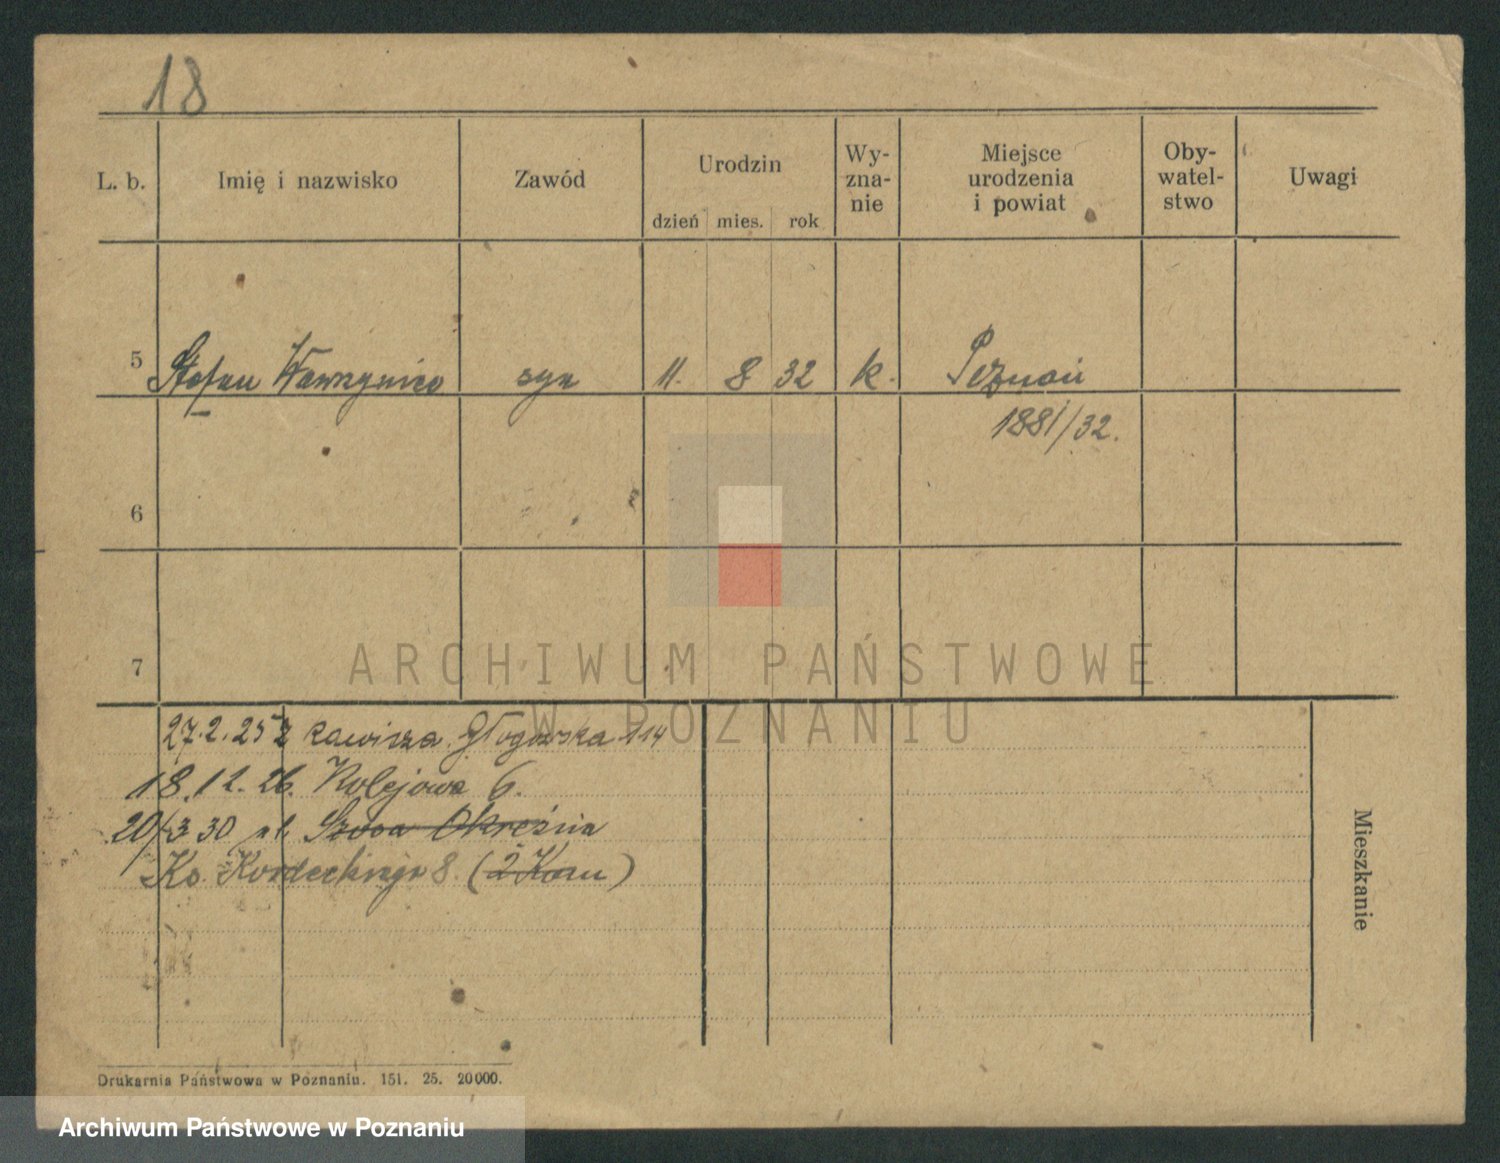 18
L. b. Imię i nazwisko Zawód Urodzin Wy-zna-nie Miejsce urodzenia i powiat Oby-watel-stwo Uwagi
dzień mies. rok
5 Stefan syn 11. 8 32 k. Poznań
1881/32.
6
7
27.2.25 z Rawicza Głogowska 114
18.12.26. Kolejowa 6.
20/3 30 Okreśna
Ks. Kordeckiego 8 (2 Kom)
Mieszkanie
Drukarnia Państwowa w Poznaniu. 151. 25. 20000.
ARCHIWUM PAŃSTWOWE
W POZNANIU
Archiwum Państwowe w Poznaniu